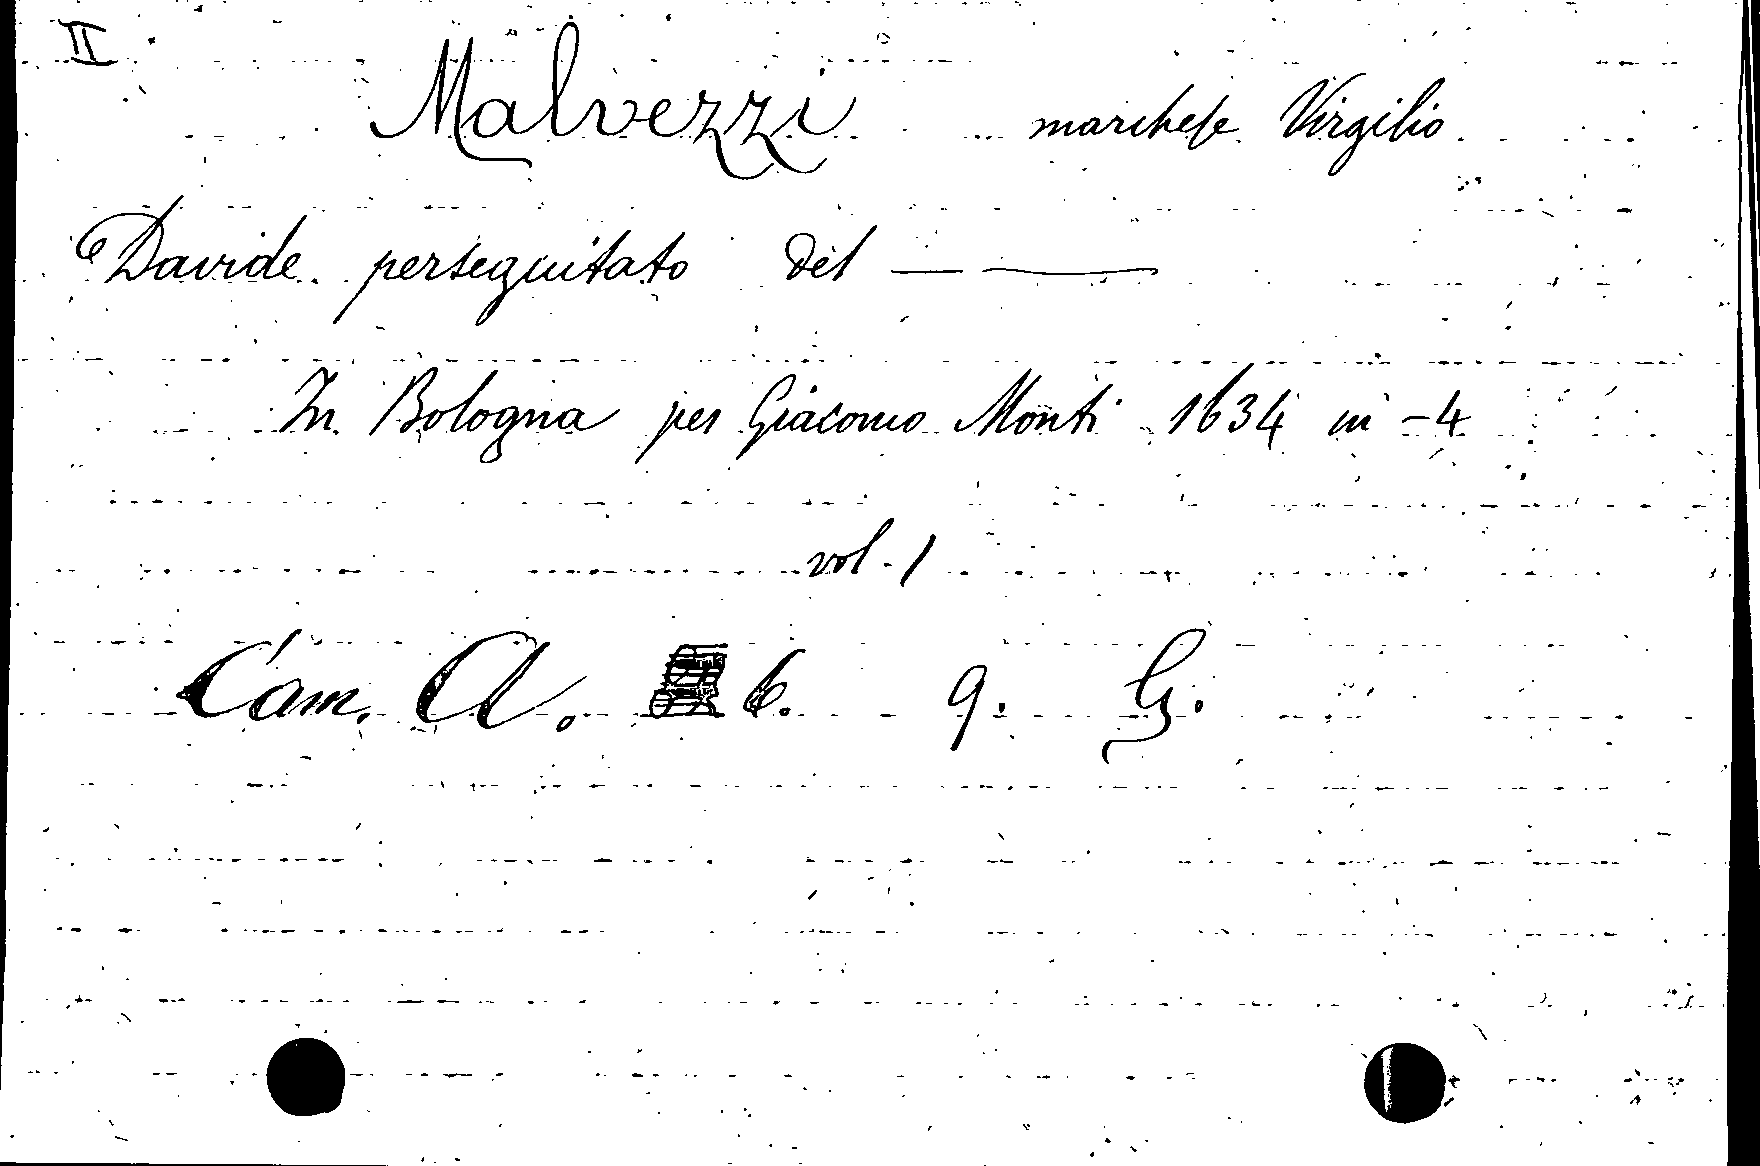 II
Malvezzi marchese Virgilio
Davide perseguitato del — ——
In Bologna per Giacomo Monti 1634 in-4
vol. 1
Cam. A. 6. 9. G.